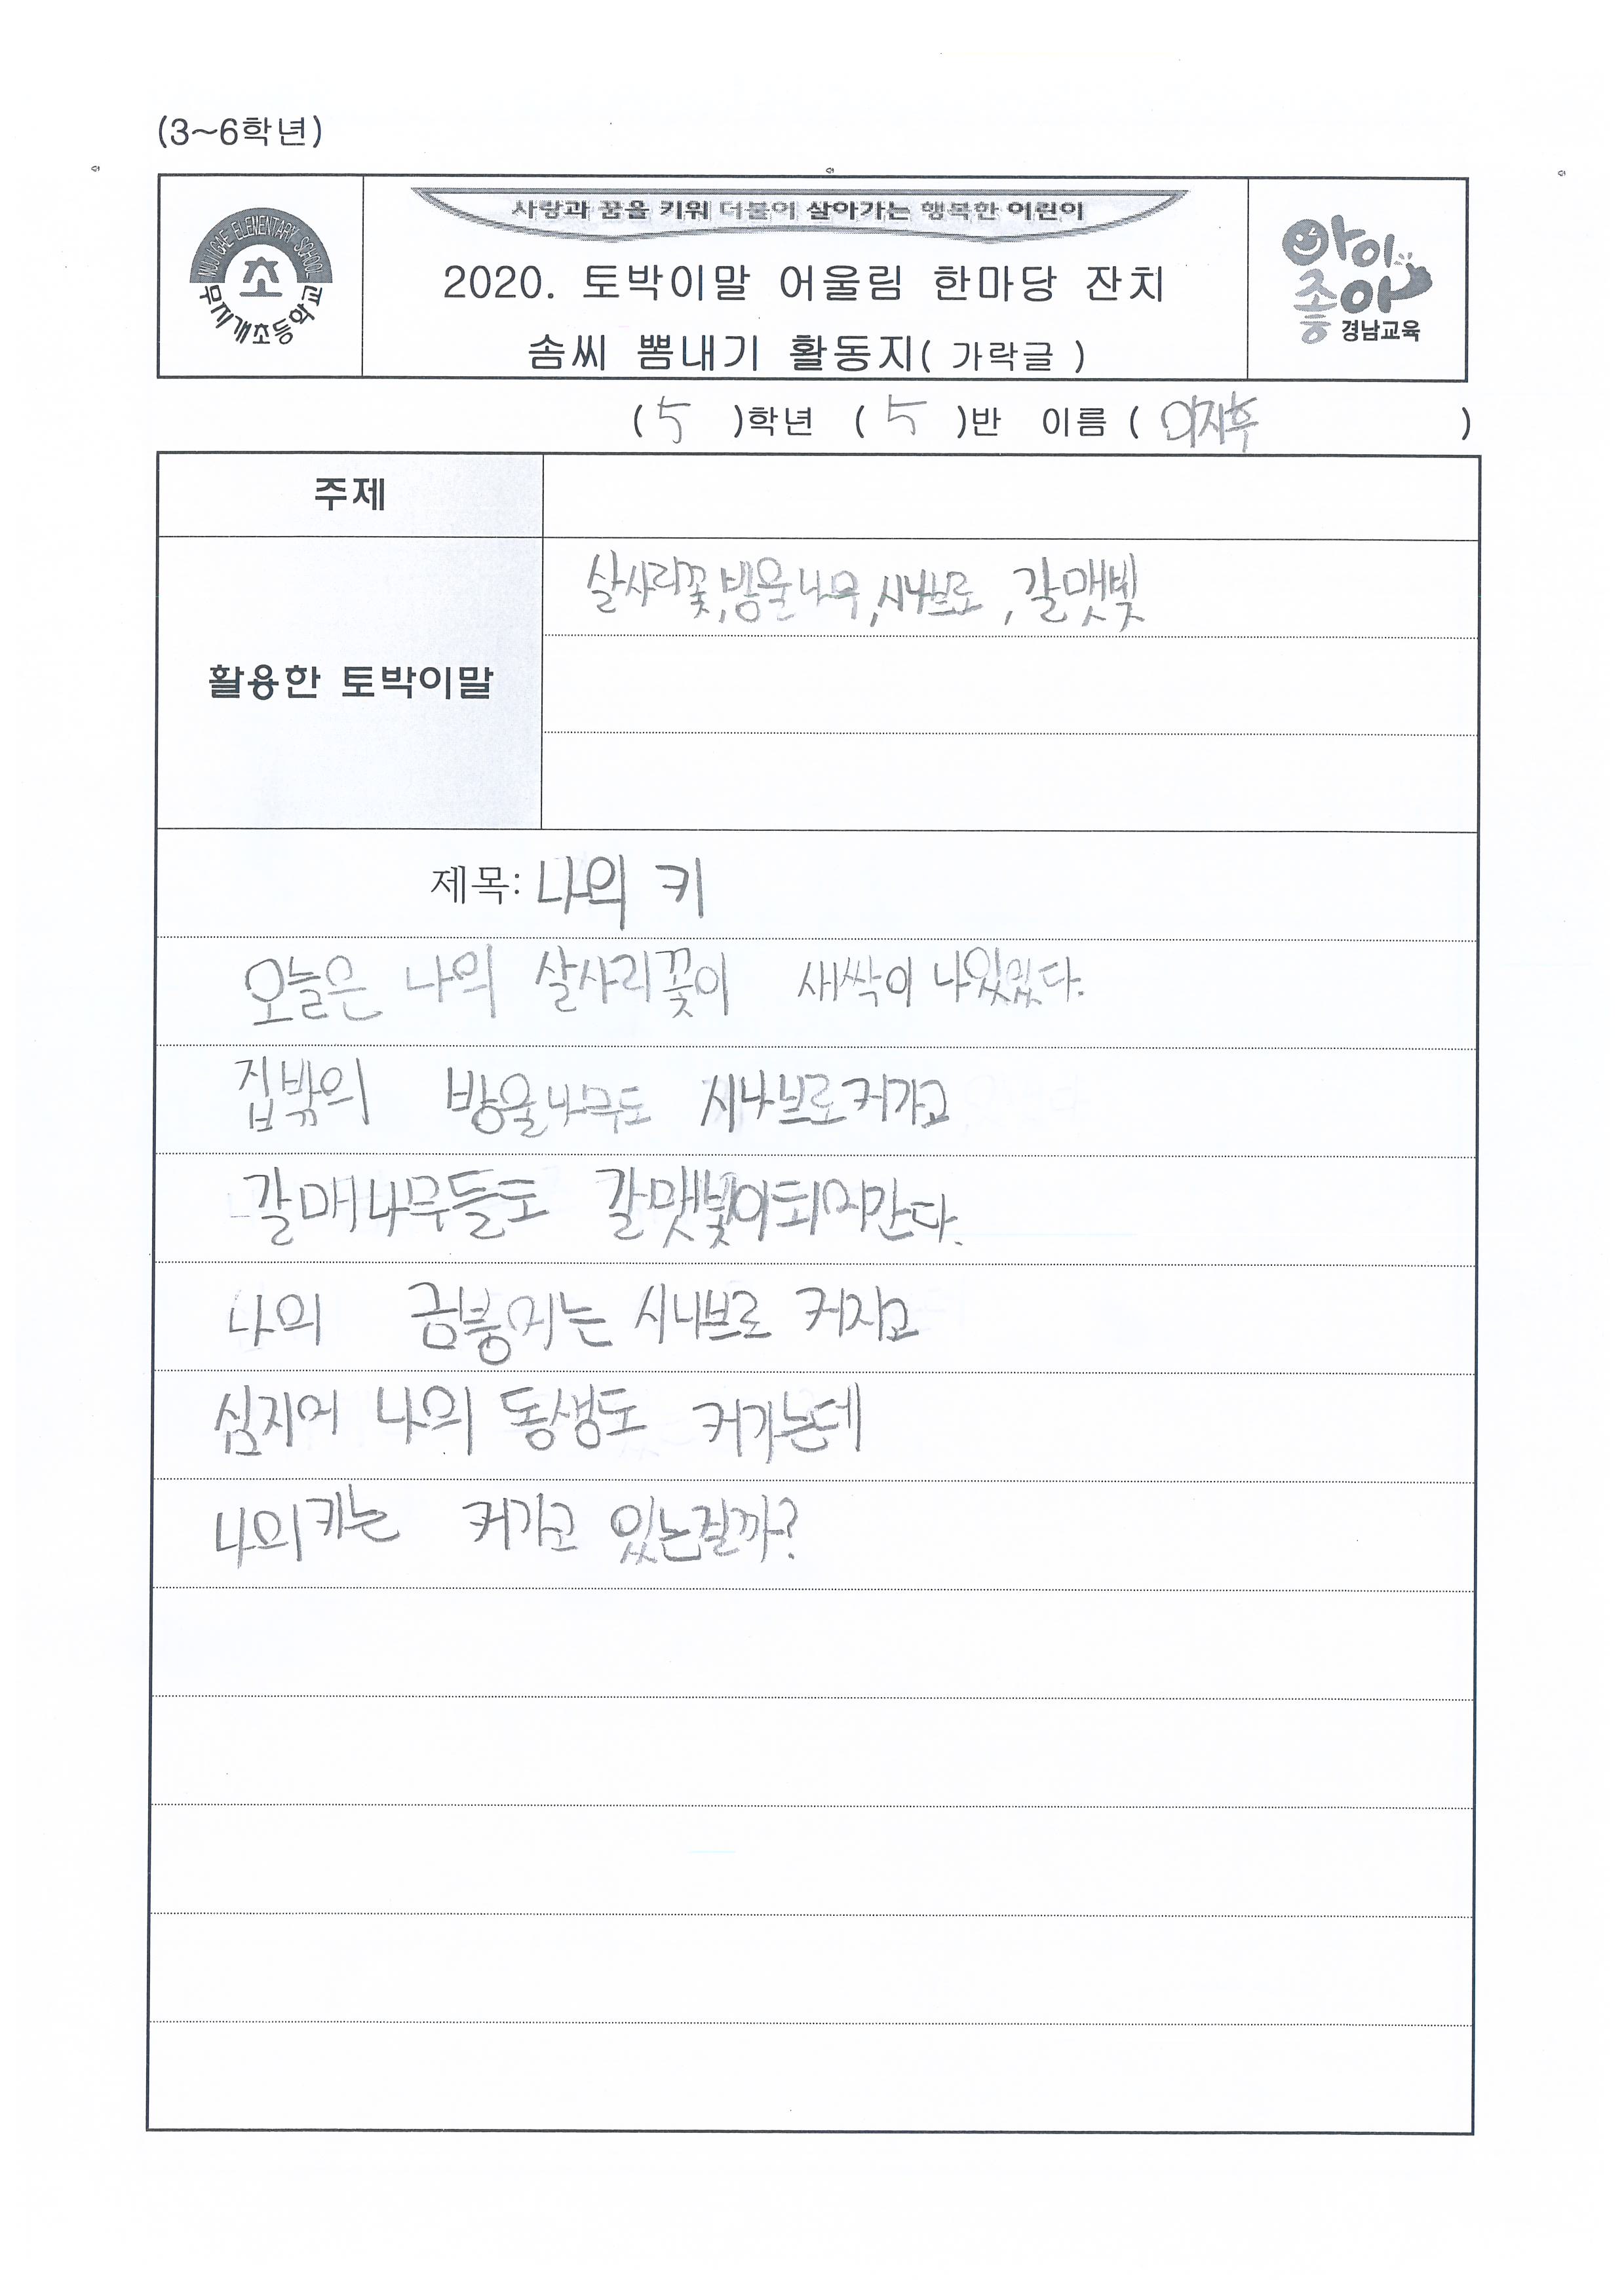 (3~6학년)
MUJIGAE ELEMENTARY SCHOOL
초
무지개초등학교
사랑과 꿈을 키워 더불어 살아가는 행복한 어린이
2020. 토박이말 어울림 한마당 잔치
솜씨 뽐내기 활동지( 가락글 )
아이좋아
경남교육
( 5 )학년 ( 5 )반 이름 ( 이지후 )
주제
활용한 토박이말
살사리꽃, 방울나무, 시나브로, 갈맷빛
제목: 나의 키
오늘은 나의 살사리꽃이 새싹이 나있있다.
집밖의 방울나무도 시나브로커가고
갈매나무들도 갈맷빛이되어간다.
나의 금붕어는 시나브로 커지고
심지어 나의 동생도 커가는데
나의키는 커가고 있는걸까?